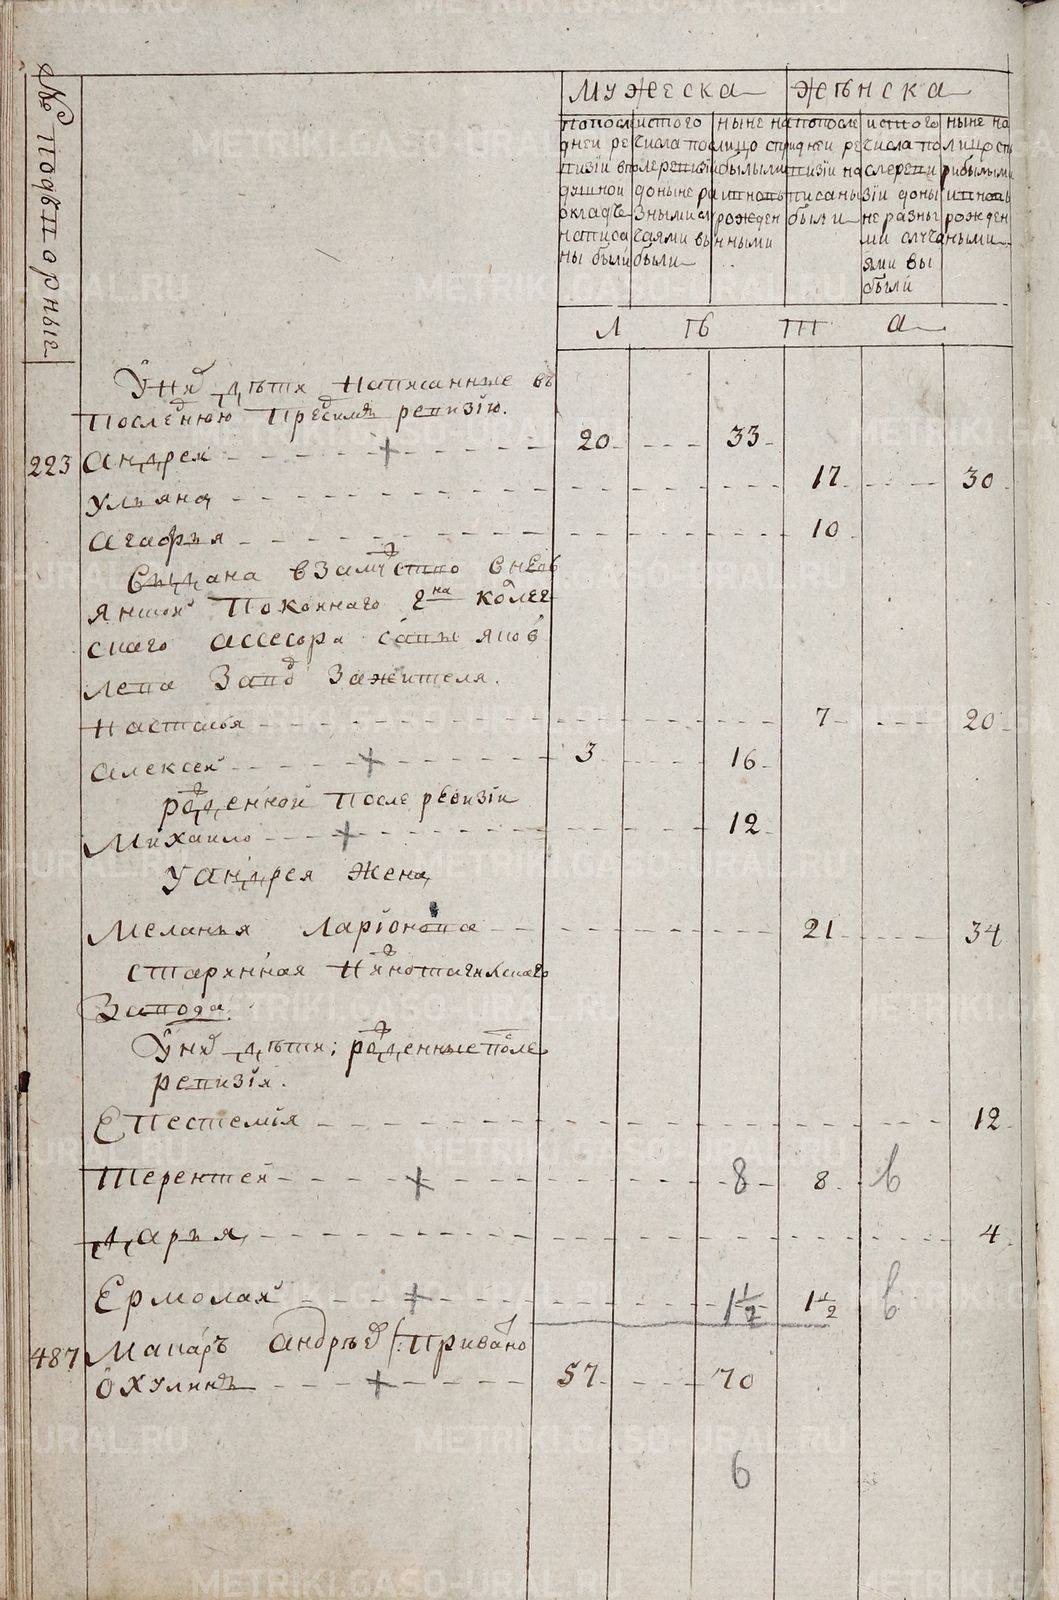 № подвпорные
Мужеска Женска
попосл дней ревизіи в подушной окладъ написаны были
истого числа послеревизіи доныне разными случаями выбыли
ныне налицо сприбылыми ивновь рожденными
попоследней ревизіи написаны были
истого числа послеревизіи доныне разными случаями выбыли
ныне налицо сприбылыми ивновь рожденными
Л ѣ т а
У них дѣти написанные въ
последнюю пред симъ ревизію.
223 Андрей - - + 20 - - 33
Ульяна - - 17 - - 30
Агафья - - 10
взамуство
покойнаго колеж
скаго ассесора савы яков
лева завод жителя.
Настасья - - 7 - - 20
Алексей - - + 3 - - 16
рожденной после ревизіи
Михаило - - + 12
у андрея жена
Меланья Ларіонова - - 21 - - 34
старинная нижнотагилскаго
завода.
У них дѣти; рожденные после
ревизіи.
Евестемія - - 12
Терентей - - + 8 - 8 - в
Дарья - - 4
Ермолай - - + 1½ 1½ в
487 Макаръ андрѣев /: привано
Охулинъ - - + 57 - - 70
6
METRIKI.GASO-URAL.RU